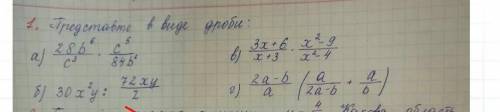 1. Представте в виде дроби:
а) 28b⁶/c³ · c⁵/84b⁶ в) 3x+6/x+3 · x²-9/x²-4
б) 30x²y : 72xy/2 г) 2a-b/a (a/2a-b + a/b)
область